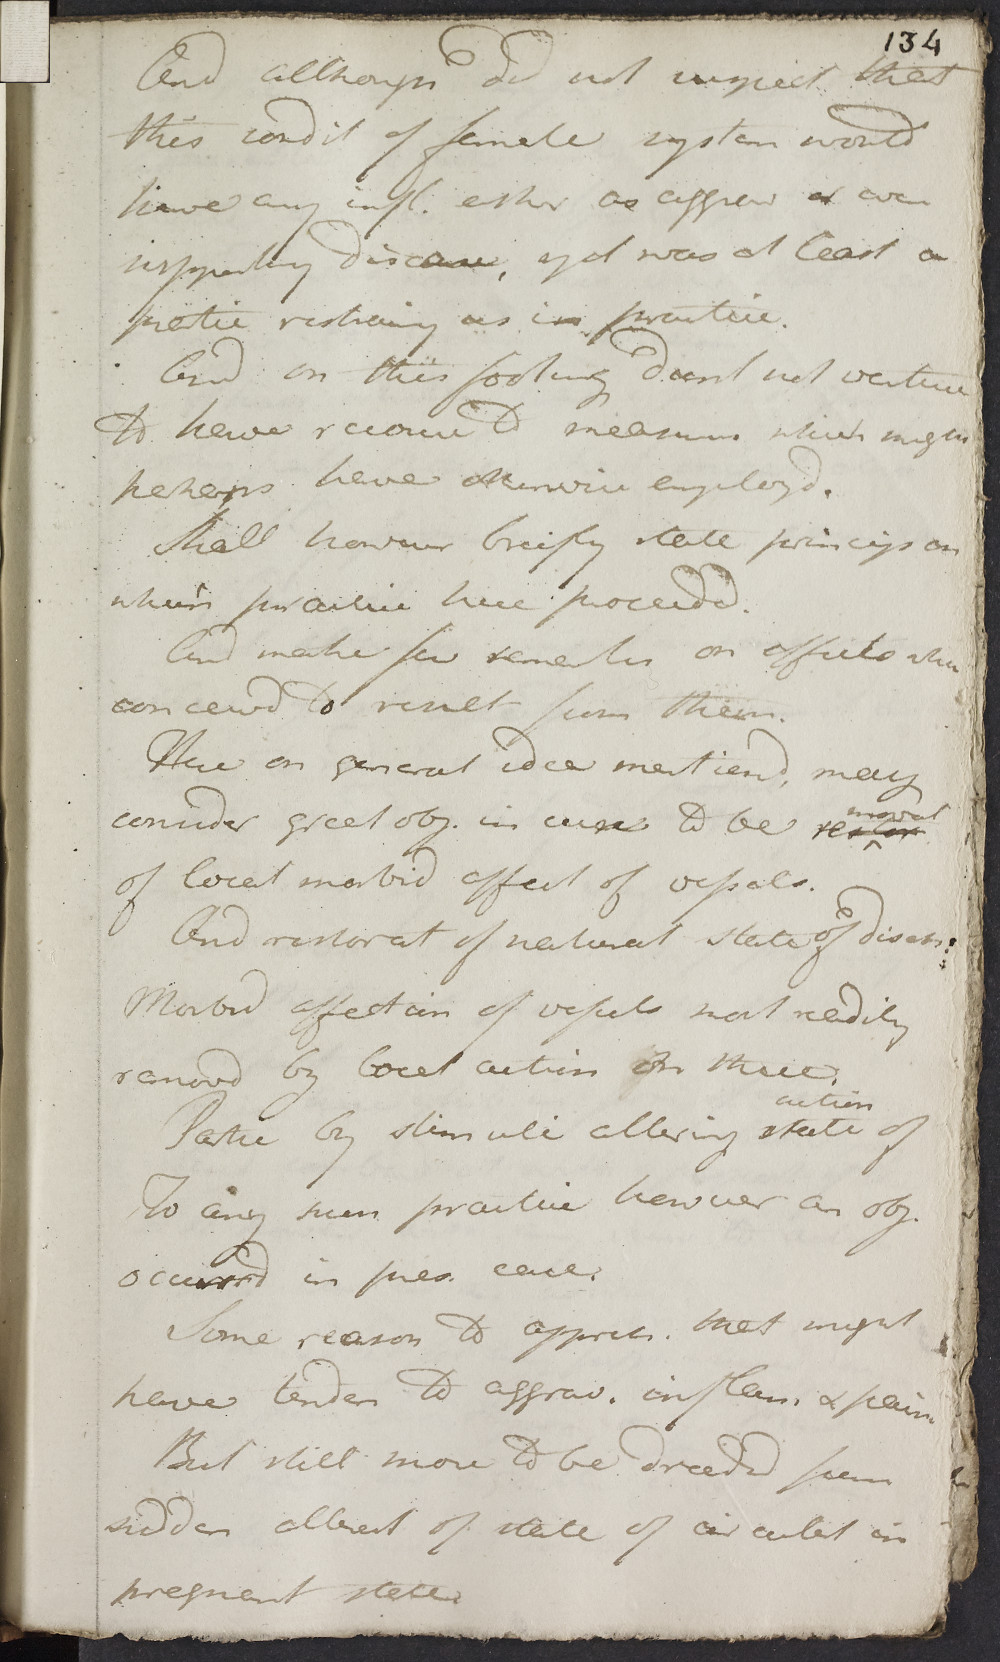 134
And althoug'h did not suspect that
this condit of female system would
have any infl. either as aggrav or even
supporting disease, yet was at least a
partic restraing us in practice.
And on this footing durst not venture
to have recourse to measures which might
perhaps have otherwise employd.
Shall however briefly state princips on
which practice here proceedd.
And make few remarks on effects which
conceivd to result from them.
Here on general idea mentiend, may
consider great obj. in cure to be removal restor
of local morbid affect of vessels.
And restorat of natural state of disch:
Morbid affection of vessels most readily
removd by local action on these.
Partic by stimuli altering action state of
To any such practice however an obj.
occurrd in pres. case.
Some reason to appreh. that might
have tenden to aggrav. inflam. & pain
But still more to be dreadd from
sudden alterat of state of circulat in
pregnant state.